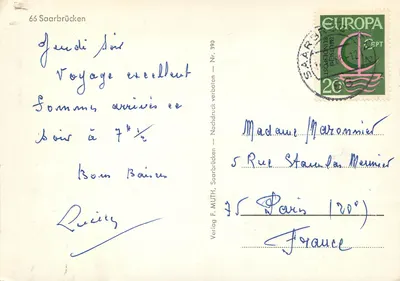 65 Saarbrücken
Jeudi Soir
Voyage excellent
Sommes arrivés ce
soir à 7h 1/2
Bons Baisers
Verlag F. MUTH, Saarbrücken — Nachdruck verboten — Nr. 190
EUROPA
CEPT
20
SAARBR
Madame Maronnier
5 Rue Stanislas Meunier
75 Paris (20e)
France